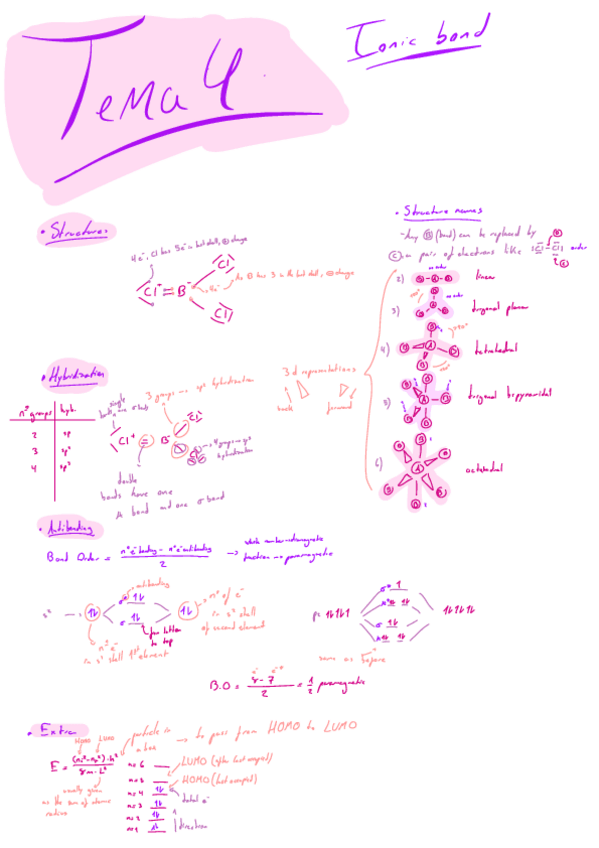 Tema 4.
Ionic bond
• Structures
4e⁻, Cl has 5e⁻ in last shell, ⊕ charge
Cl⁺ = B⁻
Cl
Cl
4e⁻
has 3 in the last shell, ⊖ charge
• Structure names
- Any Ⓑ (bond) can be replaced by
a pair of electrons like
Cl
2)
B - A - B
linear
3)
trigonal planar
4)
tetrahedral
5)
trigonal bipyramidal
6)
octahedral
3d representations
back
forward
• Hybridization
nº groups
hyb.
2 sp
3 sp²
4 sp³
single
bonds, one σ bond
3 groups → sp² hybridization
Cl⁺ = B
Cl
4 groups → sp³
hybridization
double
bonds have one
π bond and one σ bond
• Antibonding
Bond Order = (nº e⁻ bonding - nº e⁻ antibonding) / 2
→ whole number → diamagnetic
fraction → paramagnetic
antibonding
s²
σ*
σ
from bottom
to top
nº e⁻
in s² shell 1st element
nº of e⁻
in s² shell
of second element
p:
σ*
π*
σ
π
same as before
B.O = (8 - 7) / 2 = 1/2 paramagnetic
• Extra
HOMO LUMO
particle in
a box
→ to pass from HOMO to LUMO
E =
8m · L²
usually given
as the sum of atomic
radius
n = 6
LUMO (after last occupied)
n = 5
HOMO (last occupied)
n = 4
n = 3
n = 2
n = 1
total e⁻
direction